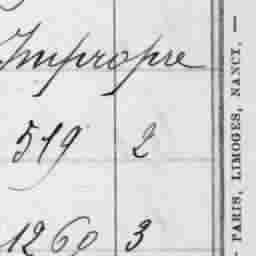 Impropre
519 2
1260 3
- PARIS, LIMOGES, NANCY. -